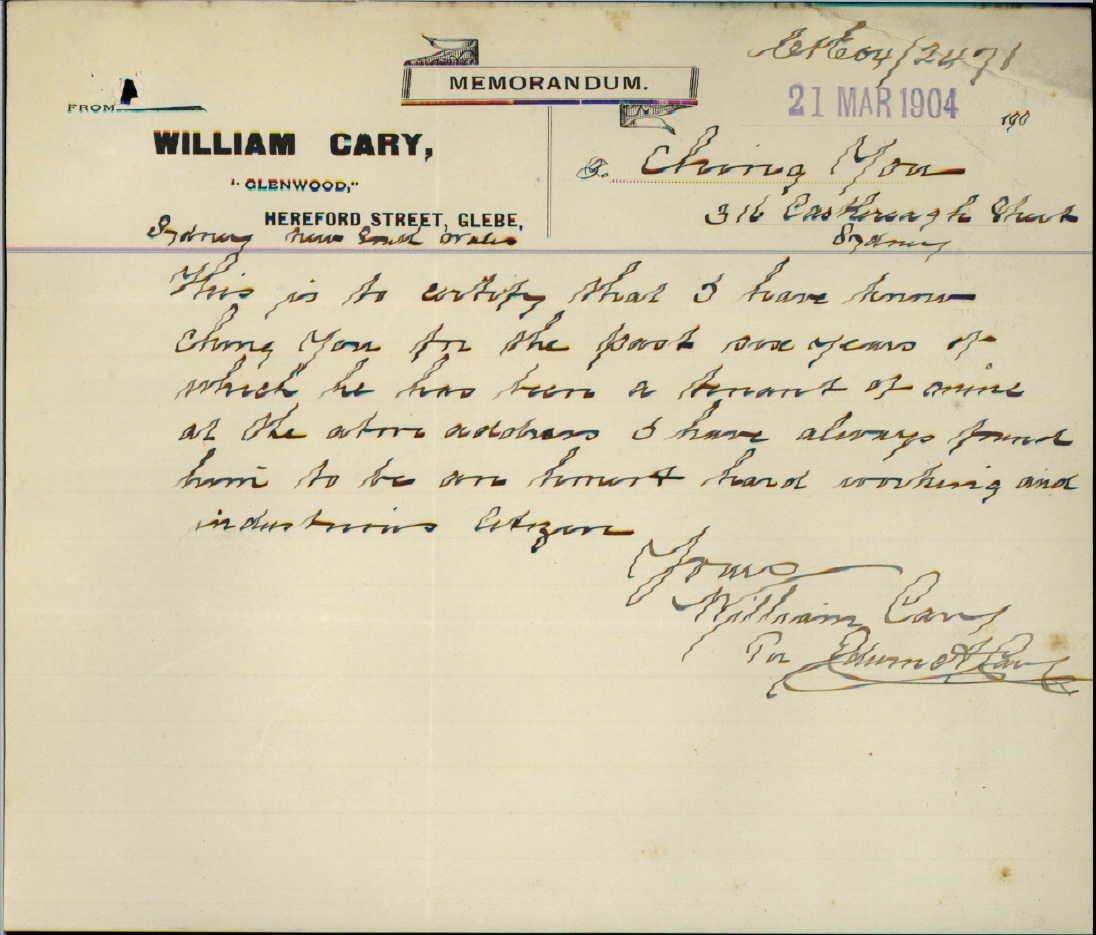 04/2471
MEMORANDUM.
21 MAR 1904
190
FROM
WILLIAM CARY,
"GLENWOOD,"
HEREFORD STREET, GLEBE,
Sydney New South Wales
To Ching You
316 Castlereagh Street
Sydney
This is to certify that I have know
Ching You for the past six years of
which he has been a tenant of mine
at the above address I have always found
him to be an honest hard working and
industrious Citizen
Yours
William Cary
Per Edwin A Cary